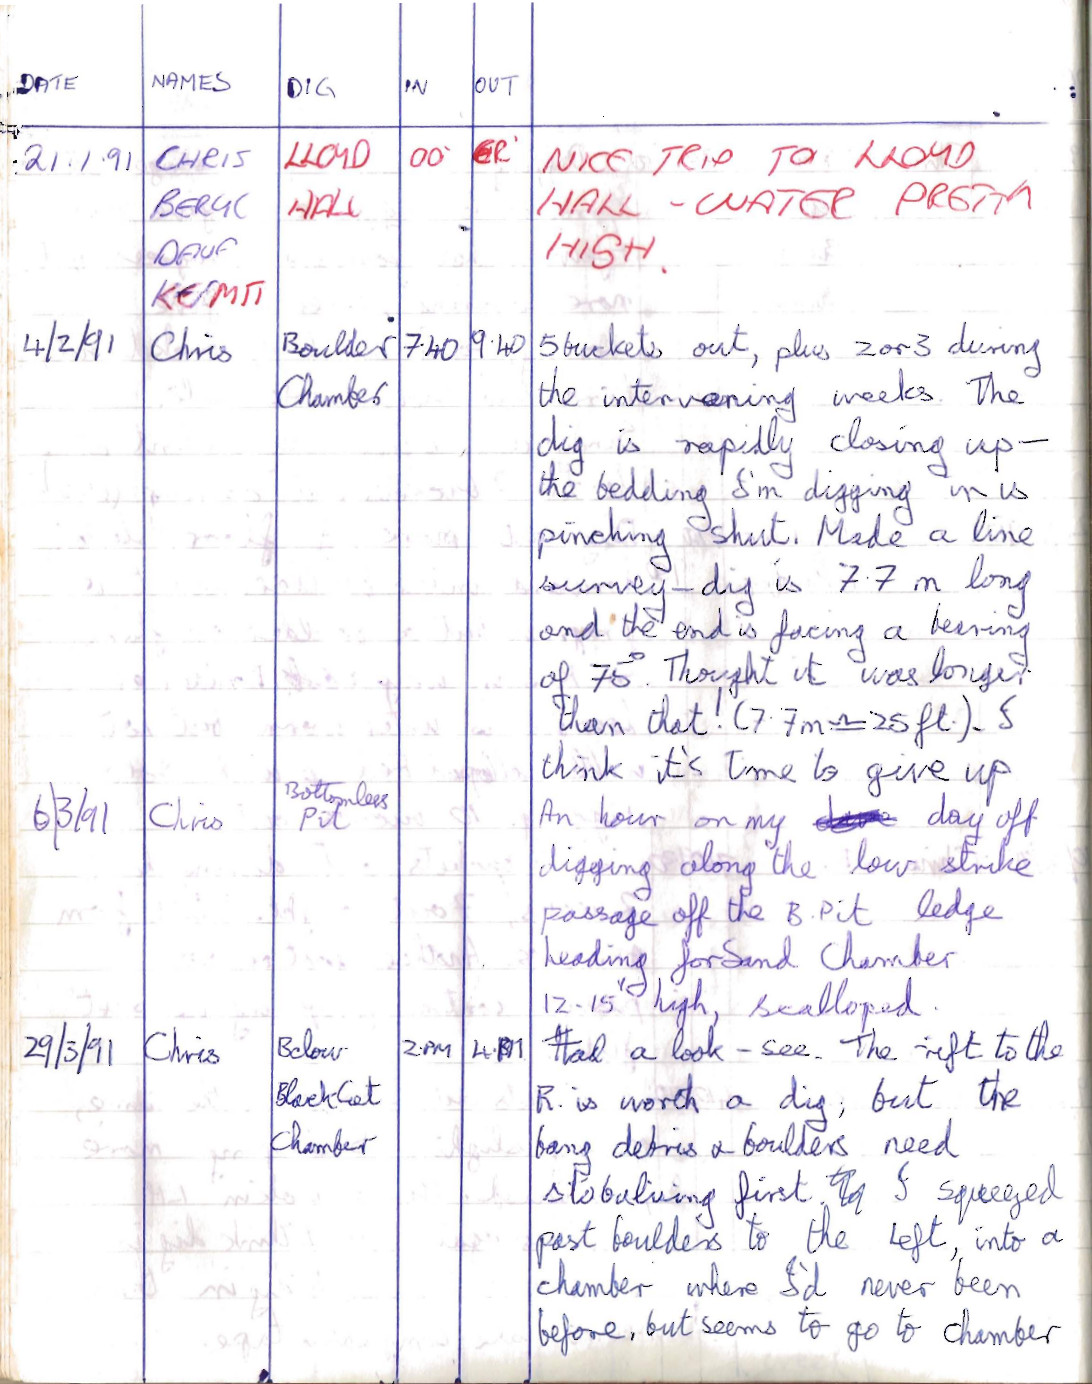 DATE NAMES DIG IN OUT
21.1.91 CHRIS LLOYD OO ER NICE TRIP TO LLOYD
BERYL HALL HALL - WATER PRETTY
DAVE HIGH.
KERMIT
4/2/91 Chris Boulder 7.40 9.40 5 buckets out, plus 2 or 3 during
Chamber the intervening weeks. The
dig is rapidly closing up -
the bedding I'm digging in is
pinching shut. Made a line
survey - dig is 7.7 m long
and the end is facing a bearing
of 75°. Thought it was longer
than that! (7.7m ≃ 25 ft.). I
think it's time to give up
6/3/91 Chris Bottomless Pit An hour on my day off
digging along the low strike
passage off the B. Pit ledge
heading for Sand Chamber
12-15" high, scalloped.
29/3/91 Chris Below 2.PM 4.PM Had a look-see. The rift to the
Black Cat R. is worth a dig, but the
Chamber bang debris & boulders need
stabalising first. I squeezed
past boulders to the left, into a
chamber where I'd never been
before, but seems to go to chamber